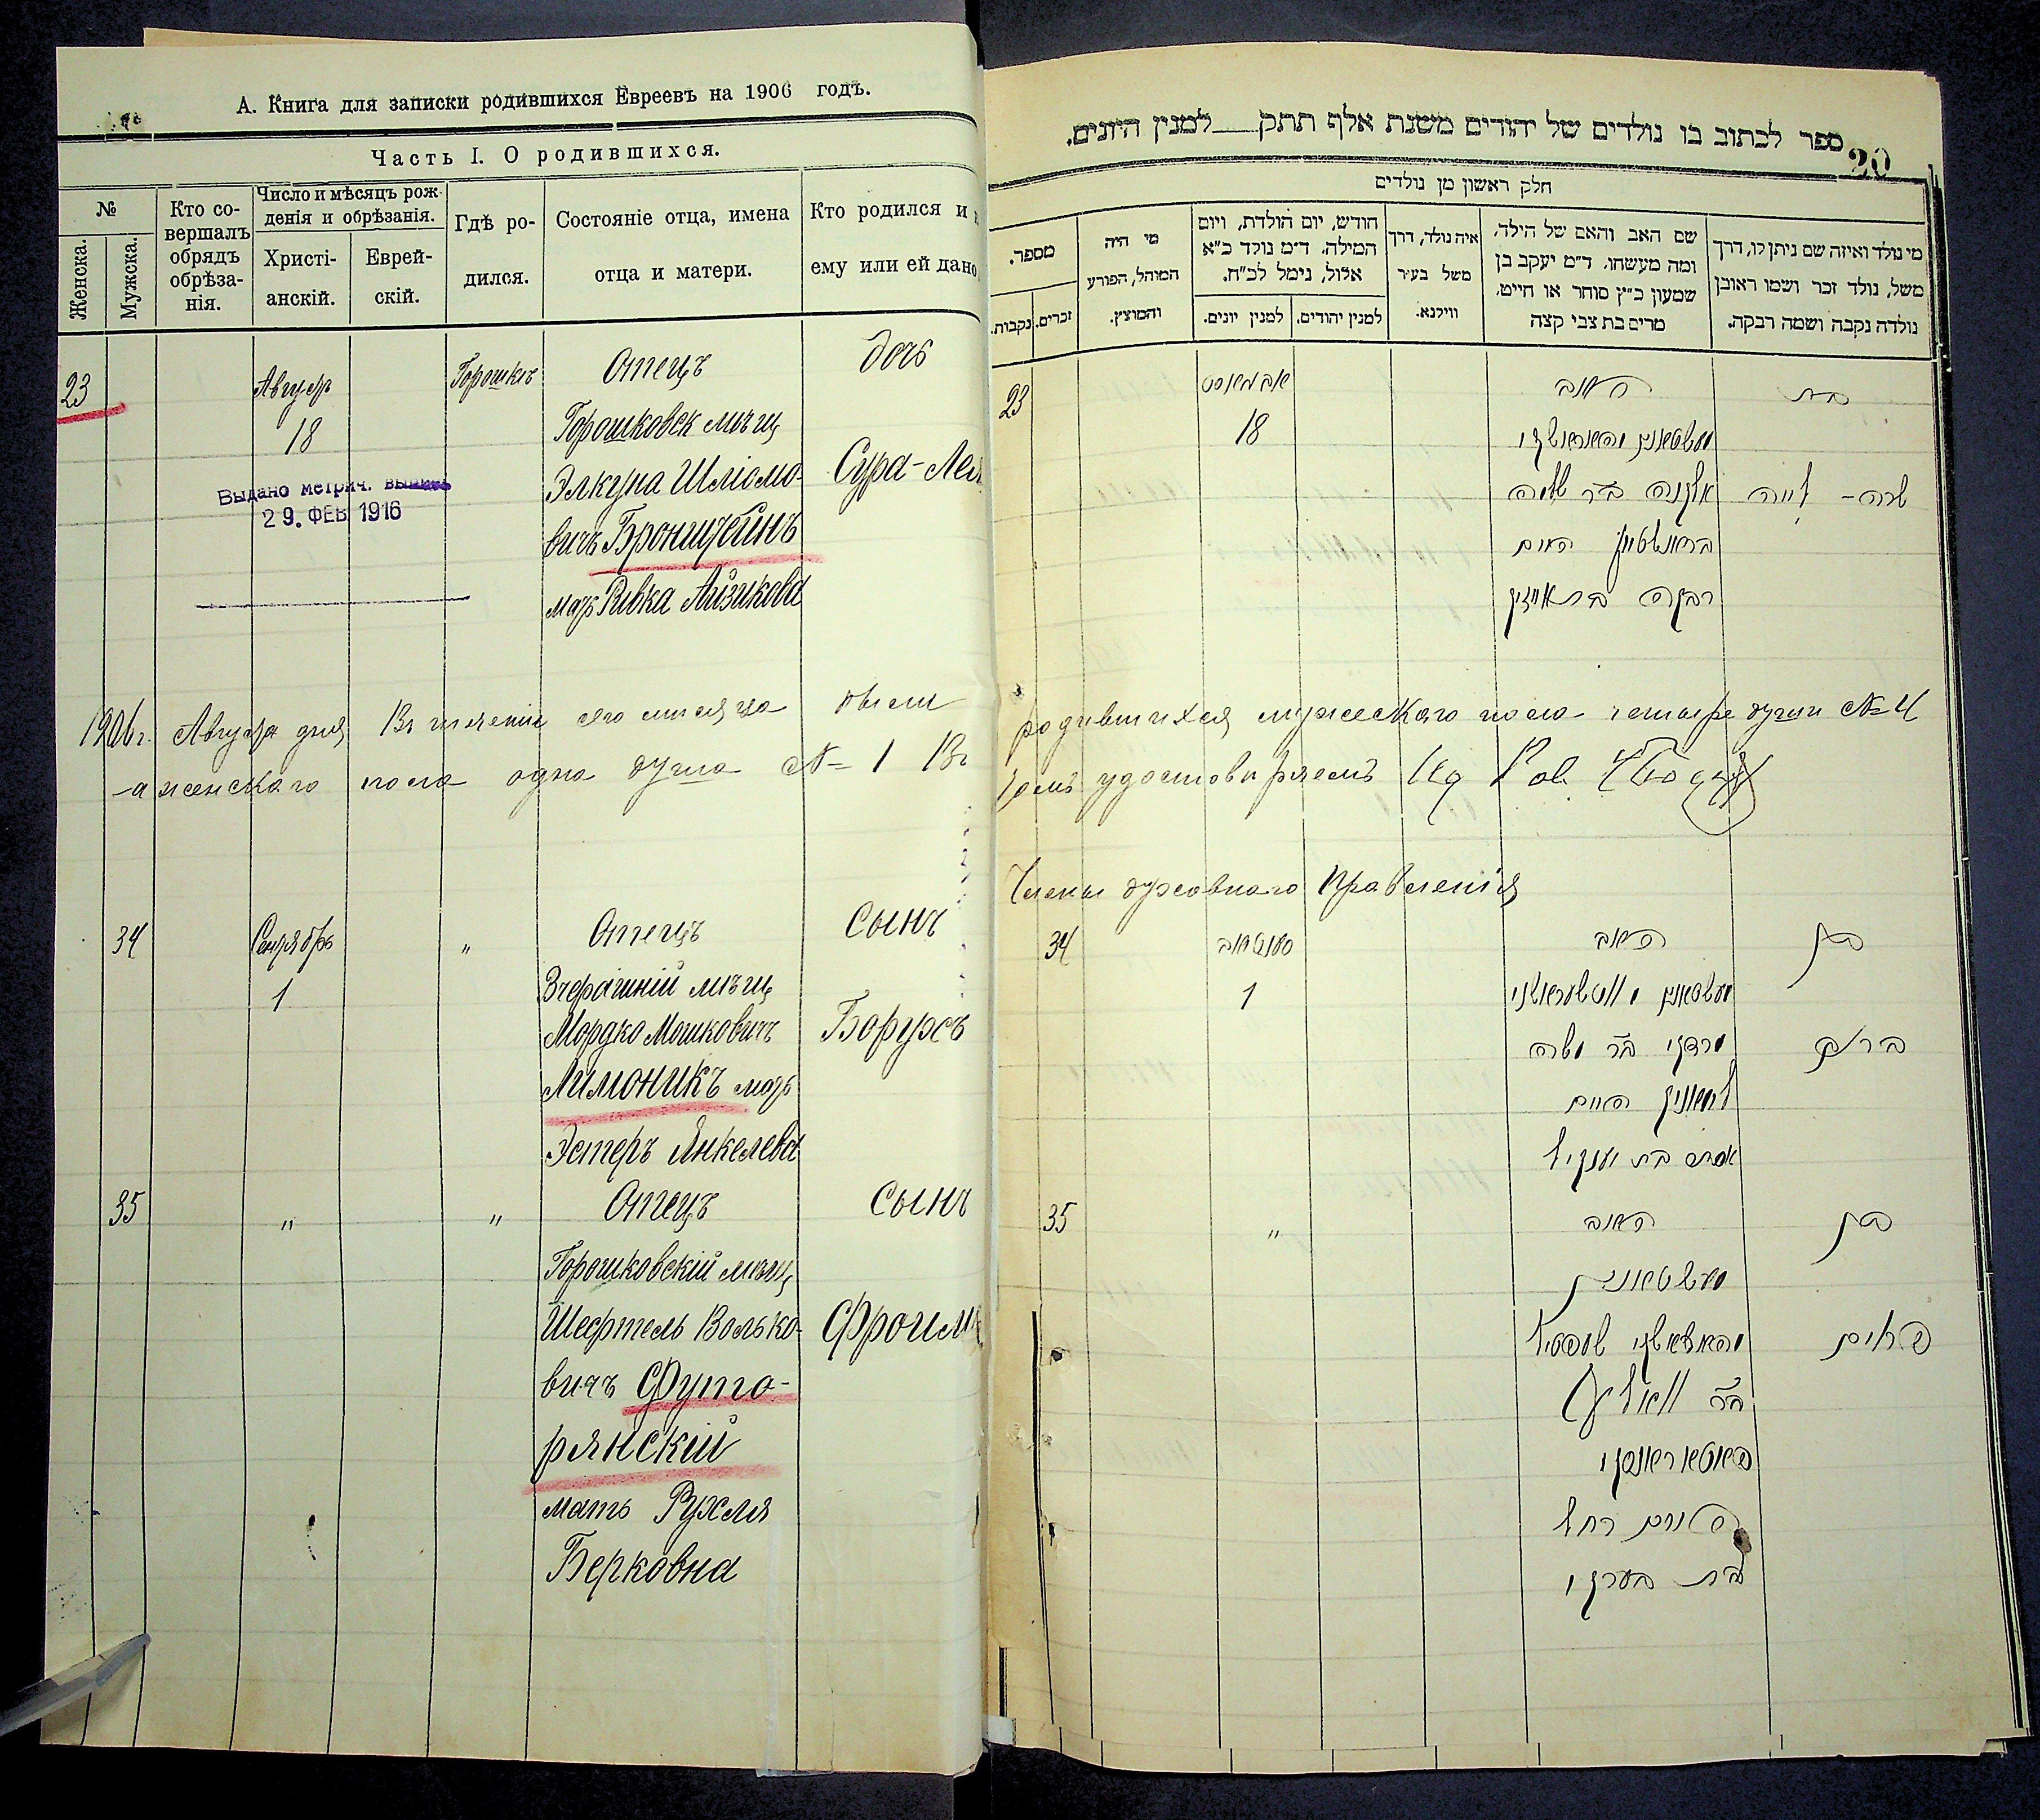 А. Книга для записки родившихся Евреевъ на 1906 годъ.
Часть I. О родившихся.
№
Женска.
Мужска.
Кто со-
вершалъ
обрядъ
обрѣза-
нія.
Число и мѣсяцъ рож-
денія и обрѣзанія.
Христі-
анскій.
Еврей-
скій.
Гдѣ ро-
дился.
Состояніе отца, имена
отца и матери.
Кто родился и
ему или ей дано
23
Августъ
18
Горошкъ
Отецъ
Горошковск мѣщ
Элкуна Шліомо-
вичъ Бронштейнъ
мать Ривка Айзикова
дочь
Сура-Лея
Выдано метрич. выпись
29. ФЕВ 1916
1906 г. Августа дня Въ теченіи сего мѣсяца были
а женского пола одна душа № 1 Въ
34
Сентябрь
1
"
Отецъ
Вчерашній мѣщ
Мордко Мошковичъ
Лимоникъ мать
Эстеръ Янкелева
Сынъ
Борухъ
35
"
"
Отецъ
Горошковскій мѣщ
Шефтель Волько-
вичъ Футо-
рянскій
мать Рухля
Берковна
Сынъ
Фроим
ספר לכתוב בו נולדים של יהודים משנת אלף תתק למנין היונים.
20
חלק ראשון מן נולדים
מי נולד ואיזה שם ניתן לו, דרך
משל, נולד זכר ושמו ראובן
נולדה נקבה ושמה רבקה.
שם האב והאם של הילד,
ומה מעשהו. ד"מ יעקב בן
שמעון כ"ץ סוחר או חייט,
מרים בת צבי קצה
איה נולד, דרך
משל בעיר
ווילנא.
חודש, יום הולדת, ויום
המילה. ד"מ נולד כ"א
אלול, נימל לכ"ח.
למנין יהודים.
למנין יונים.
מי היה
המוהל, הפורע
והמוצץ.
מספר.
זכרים.
נקבות.
23
אבגוסט
18
האב
אלקנה ב"ר שלמה
בראנשטיין האם
רבקה בת אייזיק
בת
שרה - לייה
родившихся мужеского пола четыре души № 4
томъ удостовѣряемъ
Члены духовнаго Правленія
34
סענטאב
1
האב
מרדכי ב"ר משה
לימאניק האם
אסתר בת יענקיל
בן
ברוך
35
"
האב
ב"ר וואלף
פוטאראנסקי
האם רחל
בת בערקו
בן
פרוים